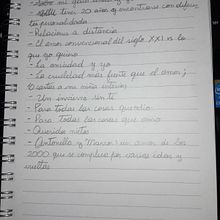 - tener 20 años y encontrarse con
personal dada
- Relaciones a distancia
- El amor convencional del siglo XXI es lo
que yo quiero
- La ansiedad y yo
- La crueldad más fuerte que el amor;
10 cartas a mi niña interior
- Un invierno sin ti
- Para todas las cosas que odio
- Para Todas las cosas que amo
- Querida nietas
- (Antonella y Marcos) un amor de los
2000 que se complica por varias idas y
vueltas